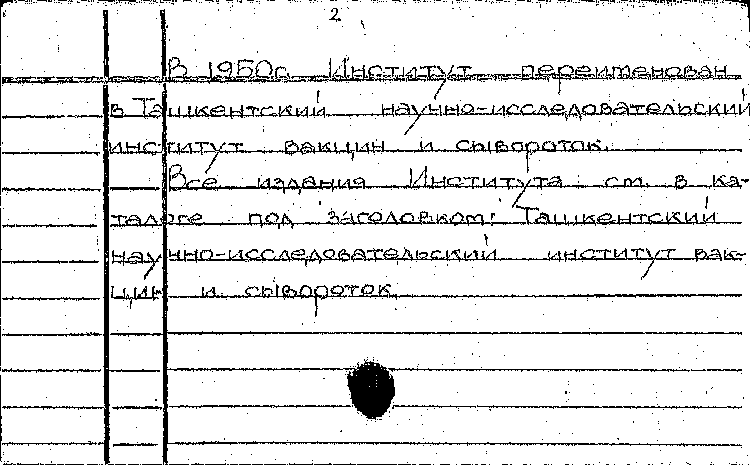 2
В 1950г. Институт переименован
в Ташкентский научно-исследовательский
институт вакцин и сывороток.
Все издания Института см. в ка-
талоге под заголовком: Ташкентский
научно-исследовательский институт вак-
цин и сывороток.